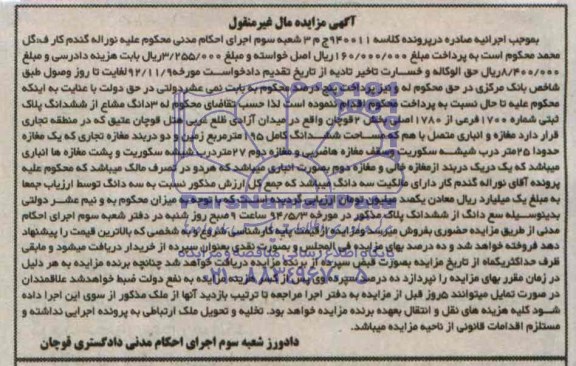 آگهی مزایده مال غیرمنقول
بموجب اجرائیه صادره درپرونده کلاسه ۹۴۰۰۱۱ج م ۳ شعبه سوم اجرای احکام مدنی محکوم علیه نوراله گندم کار ف:گل
محمد محکوم است به پرداخت مبلغ ۱۶۰/۰۰۰/۰۰۰ریال اصل خواسته و مبلغ ۳/۲۵۵/۰۰۰ریال بابت هزینه دادرسی و مبلغ
۸/۴۰۰/۰۰۰ریال حق الوکاله و خسارت تاخیر تادیه از تاریخ تقدیم دادخواست مورخه۹۲/۱۱/۹لغایت تا روز وصول طبق
شاخص بانک مرکزی در حق محکوم له و نیز پرداخت پنج درصد محکوم به بابت نمی عشردولتی در حق دولت با عنایت به اینکه
محکوم علیه تا حال نسبت به پرداخت محکوم به اقدام ننموده است لذا حسب تقاضای محکوم له ۳دانگ مشاع از ششدانگ پلاک
ثبتی شماره ۱۷۰۰فرعی از ۱۷۸۰اصلی بخش ۲قوچان واقع در میدان آزادی ضلع غربی هتل قوچان عتیق که در منطقه تجاری
قرار دارد مغازه و انباری متصل با هم که مساحت ششدانگ کامل ۹۵ مترمربع زمین و دو دربند مغازه تجاری که یک مغازه
حدودا ۲۵متر درب شیشه سکوریت وسقف مغازه هاضربی و مغازه دوم ۲۷متردرب شیشه سکوریت و پشت مغازه ها انباری
میباشد که یک دربک دربند ازمغازه خالی و مغازه دوم بصورت انباری میباشد که هردو در تصرف مالک میباشد که محکوم علیه
پرونده آقای نوراله گندم کار دارای مالکیت سه دانگ میباشد که جمع کل ارزش مذکور نسبت به سه دانگ توسط ارزیاب جمعا
به مبلغ یک میلیارد ریال معادن یکصد میلیون تومان ارزیابی گردیده است که با توجه به میزان محکوم به و نیم عشر دولتی
بدینوسیله سع دانگ از ششدانگ پلاک مذکور در مورخه ۹۴/۵/۳ ساعت ۹صبح روز شنبه در دفتر شعبه سوم اجرای احکام
مدنی از طریق مزایده حضوری بفروش میرسد ومزایده از قیمت پایه کارشناسی شروع و به شخصی که بالاترین قیمت را پیشنهاد
دهد فروخته خواهد شد و ده درصد بهای مزایده فی المجلس و بصورت نقدی بعنوان سپرده از خریدار دریافت میشود و مابقی
ظرف حداکثریکماه از تاریخ مزایده بصورت قبض سپرده از برنده مزایده دریافت خواهد شد چنانچه برنده مزایده به هر دلیل
در زمان مقرر بهای مزایده را نپردازد ده درصد سپرده وی پس از کسر هزینه مزایده به نفع دولت ضبط خواهدشد علاقمندان
در صورت تمایل میتوانند ۵روز قبل از مزایده به دفتر اجرا مراجعه تا ترتیب بازدید آنها از ملک مذکور از سوی این اجرا داده
شود کلیه هزینه های نقل و انتقال بعهده برنده مزایده خواهد بود. تخلیه و تحویل ملک ارتباطی به پرونده اجرایی نداشته و
مستلزم اقدامات قانونی از ناحیه مزایده میباشد.
دادورز شعبه سوم اجرای احکام مدنی دادگستری قوچان